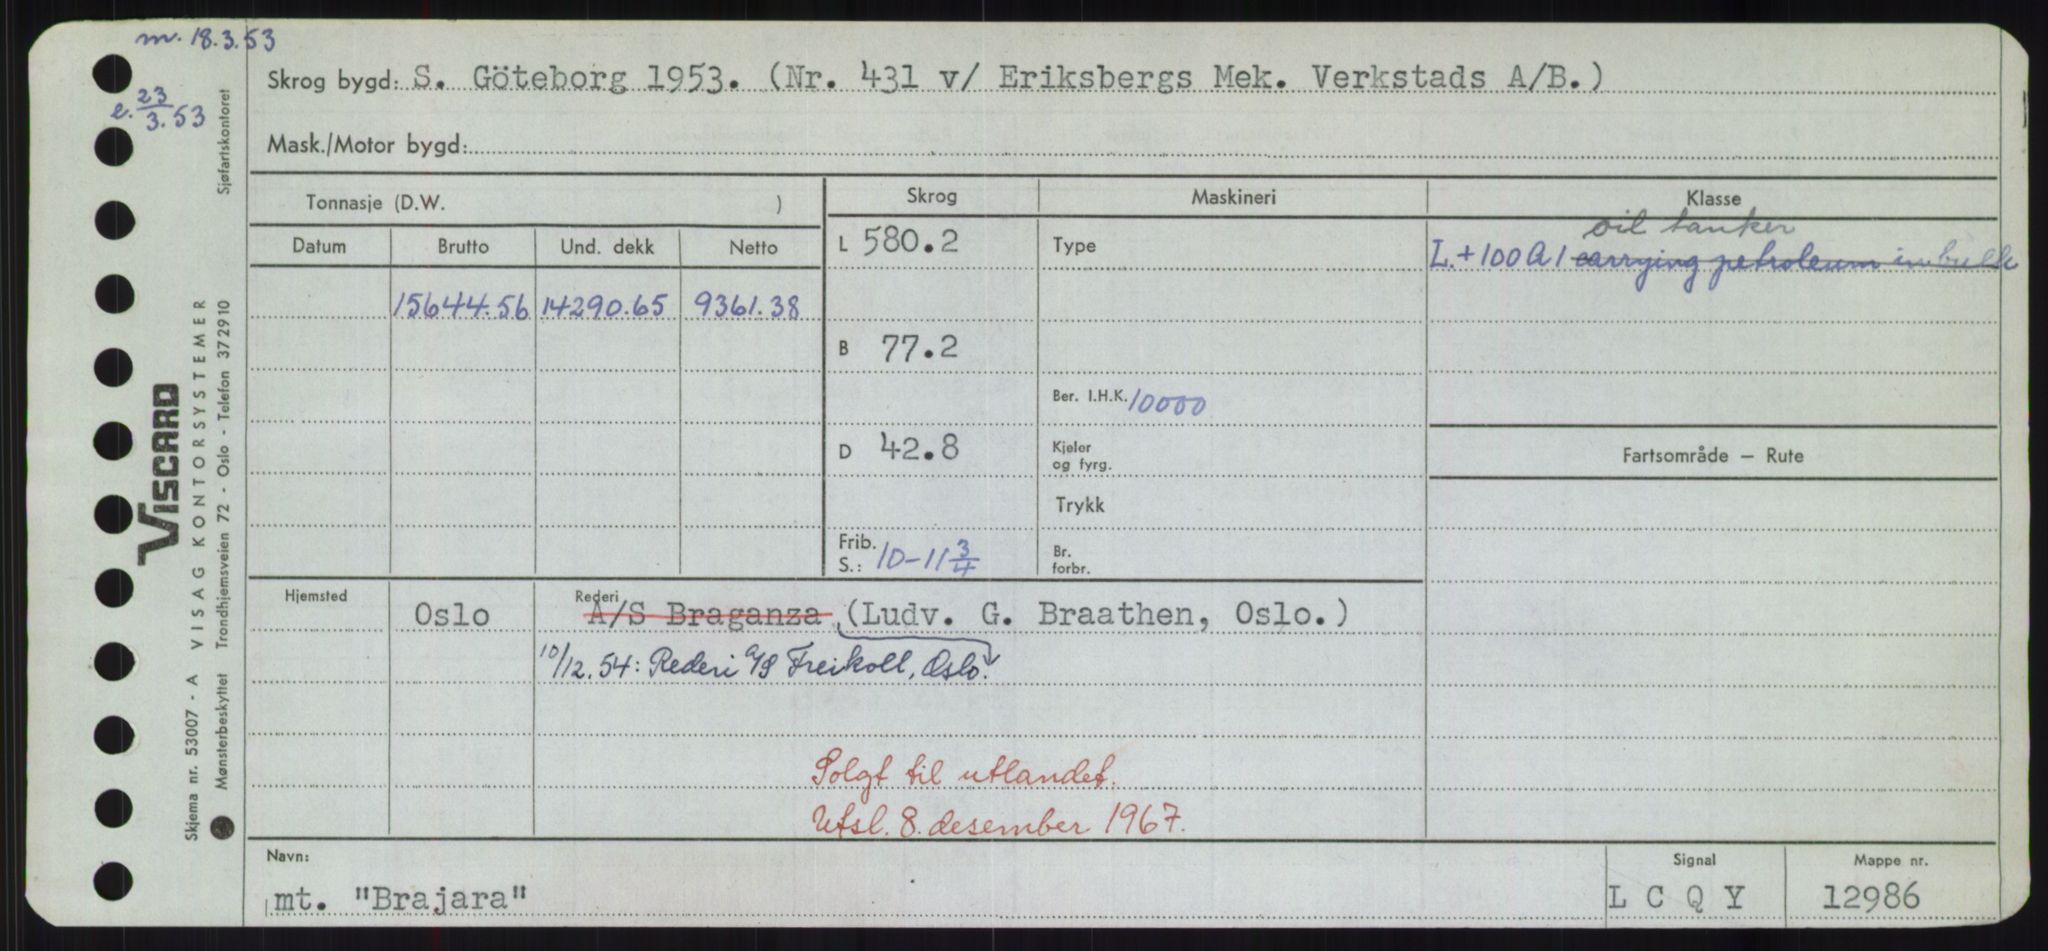 m. 18.3.53
e. 23/3.53
Skrog bygd: S. Göteborg 1953. (Nr. 431 v/ Eriksbergs Mek. Verkstads A/B.)
Mask./Motor bygd:
Tonnasje (D.W. )
Skrog
Maskineri
Klasse
Datum Brutto Und. dekk Netto
15644.56 14290.65 9361.38
L 580.2
B 77.2
D 42.8
Frib. S.: 10-11 3/4
Type
Ber. I.H.K. 10000
Kjeler
og fyrg.
Trykk
Br.
forbr.
oil tanker
L.+100A1 carrying petroleum in bulk
Fartsområde — Rute
Hjemsted Oslo
Rederi
A/S Braganza (Ludv. G. Braathen, Oslo.)
10/12.54: Rederi A/S Freikoll, Oslo.
Solgt til utlandet.
Utsl. 8. desember 1967.
Navn:
mt. "Brajara"
Signal
L C Q Y
Mappe nr.
12986
VISCARD
VISAG KONTORSYSTEMER
Sjøfartskontoret
Trondhjemsveien 72 - Oslo - Telefon 372910
Skjema nr. 53007 - A
Mønsterbeskyttet